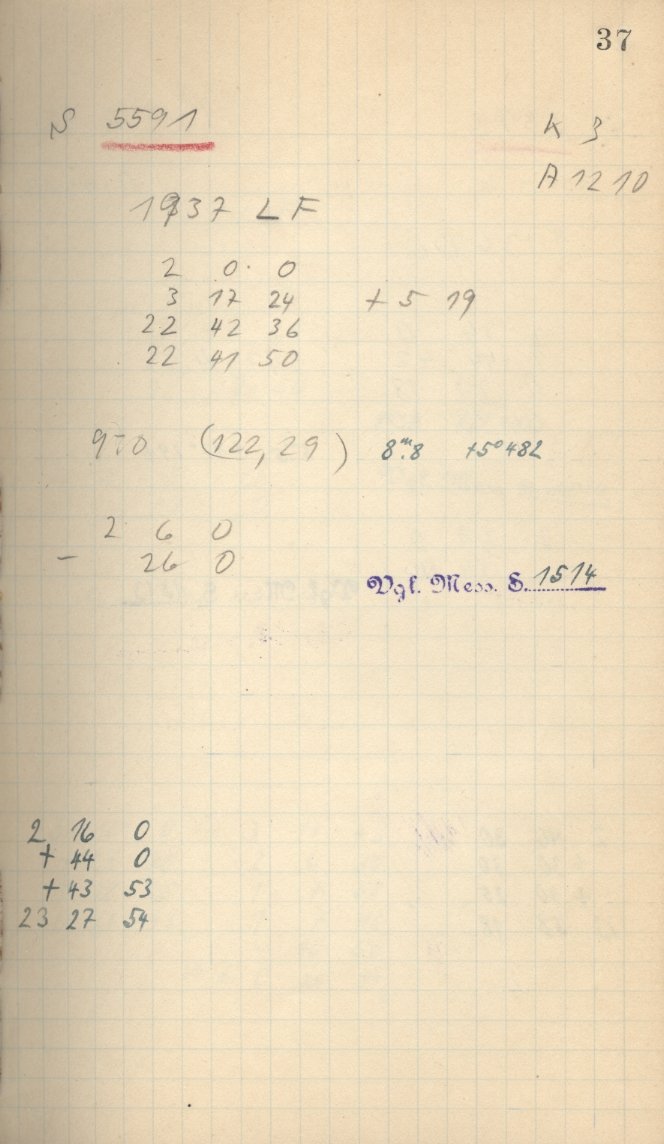 37
S 5591
K 3
A 12 10
1937 LF
2 0 0
3 17 24 + 5 19
22 42 36
22 41 50
970 (122,29) 8ᵐ.8 +5°482
2 6 0
- 26 0
Vgl. Mess. S. 1514
2 16 0
+ 44 0
+ 43 53
23 27 54